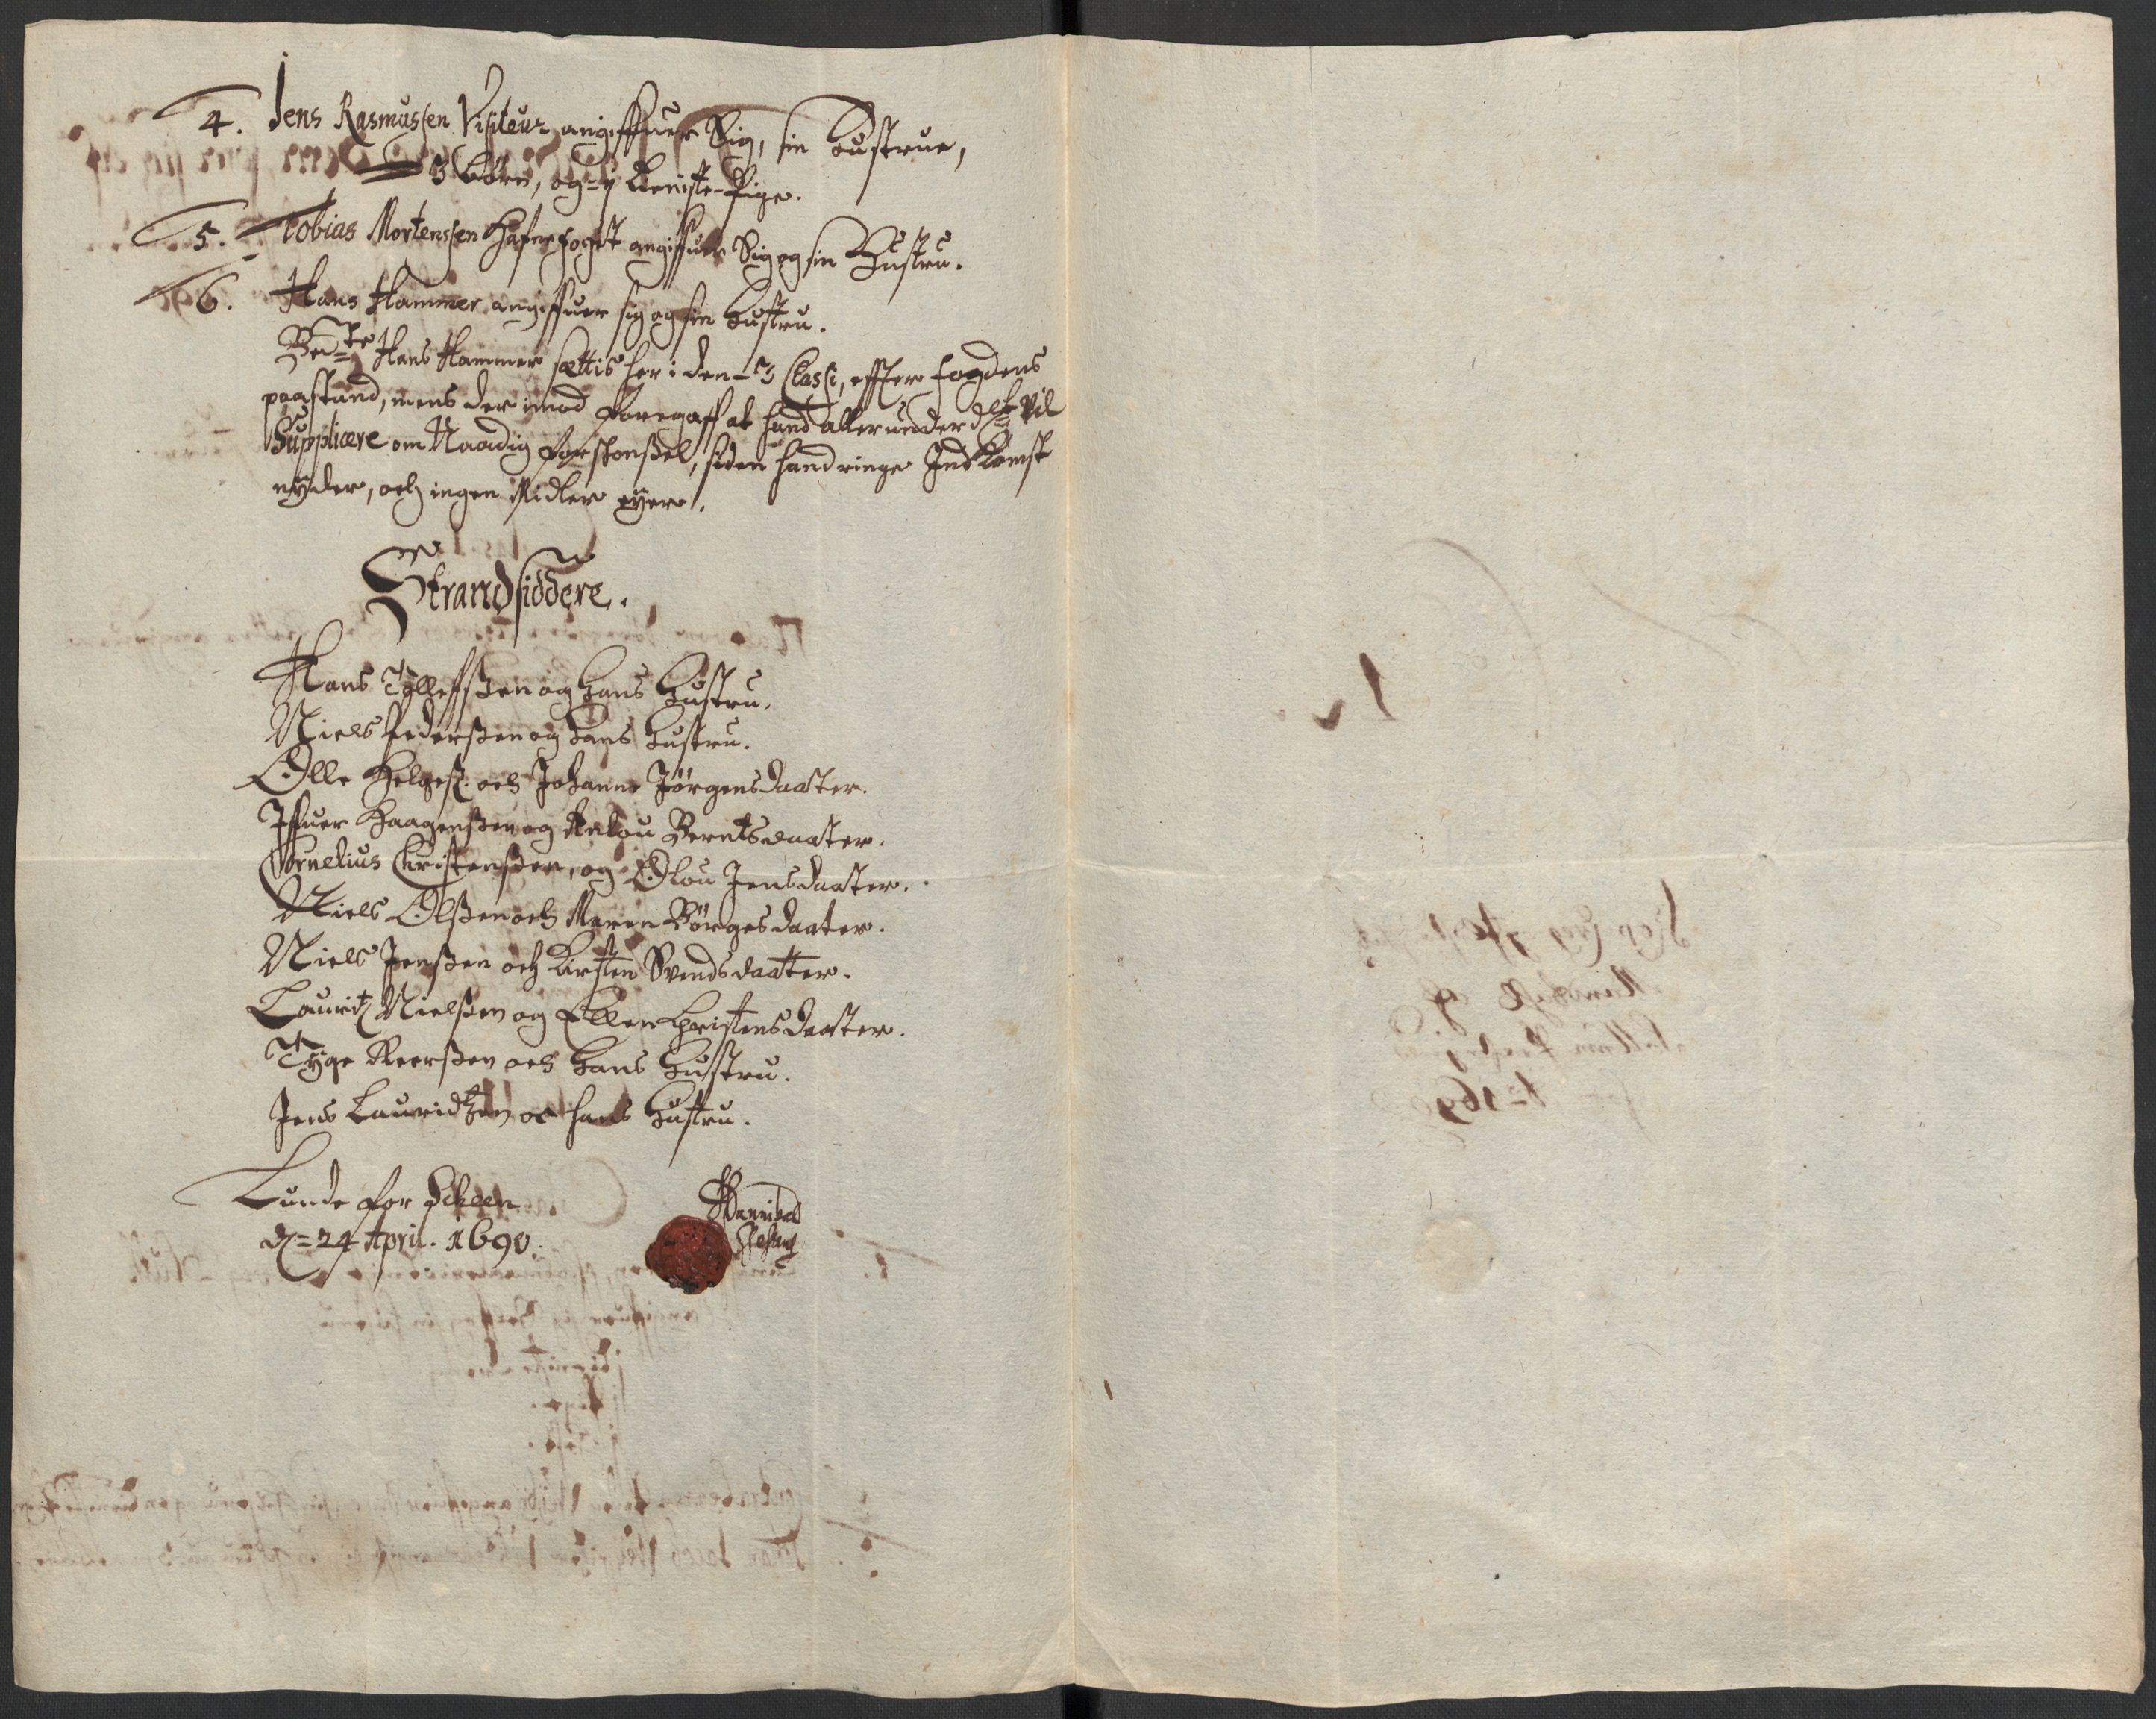 4. Jens Rasmussen Visiteur angiffuer Sig, sin Hustrue,
3 Børn, og = 1 Tieniste-Pige.
5. Tobias Mortenssen Hafnefoget angiffuer Sig og sin Hustru.
6. Hans Hammer angiffuer sig og sin Hustru.
Bem:te Hans Hammer sættis her i den = 3 Classi, effter fogdens
paastand, mens der imod foregaff at hand allerunderd:st vil
Supplicere om Naadig forskonßel, siden hand ringe Indkomst
nyder, och ingen Midler eyer.
Strandsiddere.
Hans Tolleffßen og Hans Hustru.
Niels Pederßen og Hans Hustru.
Olle Helgeß. och Johanne Jørgensdaatter.
Iffuer Haagenßen og Berntsdaatter.
Cornelius Christenßen, og Olou Jensdaatter.
Niels Olßen och Maren Børgesdaatter.
Niels Jenßen och Kirsten Svendsdaatter.
Lauritz Nielßen og Ellen Christensdaatter.
Tyge Reerßen och Hans Hustru.
Jens Lauridtzen oc hans Hustru.
Lunde for Scheen
d = 24 April. 1690.
Hannibal